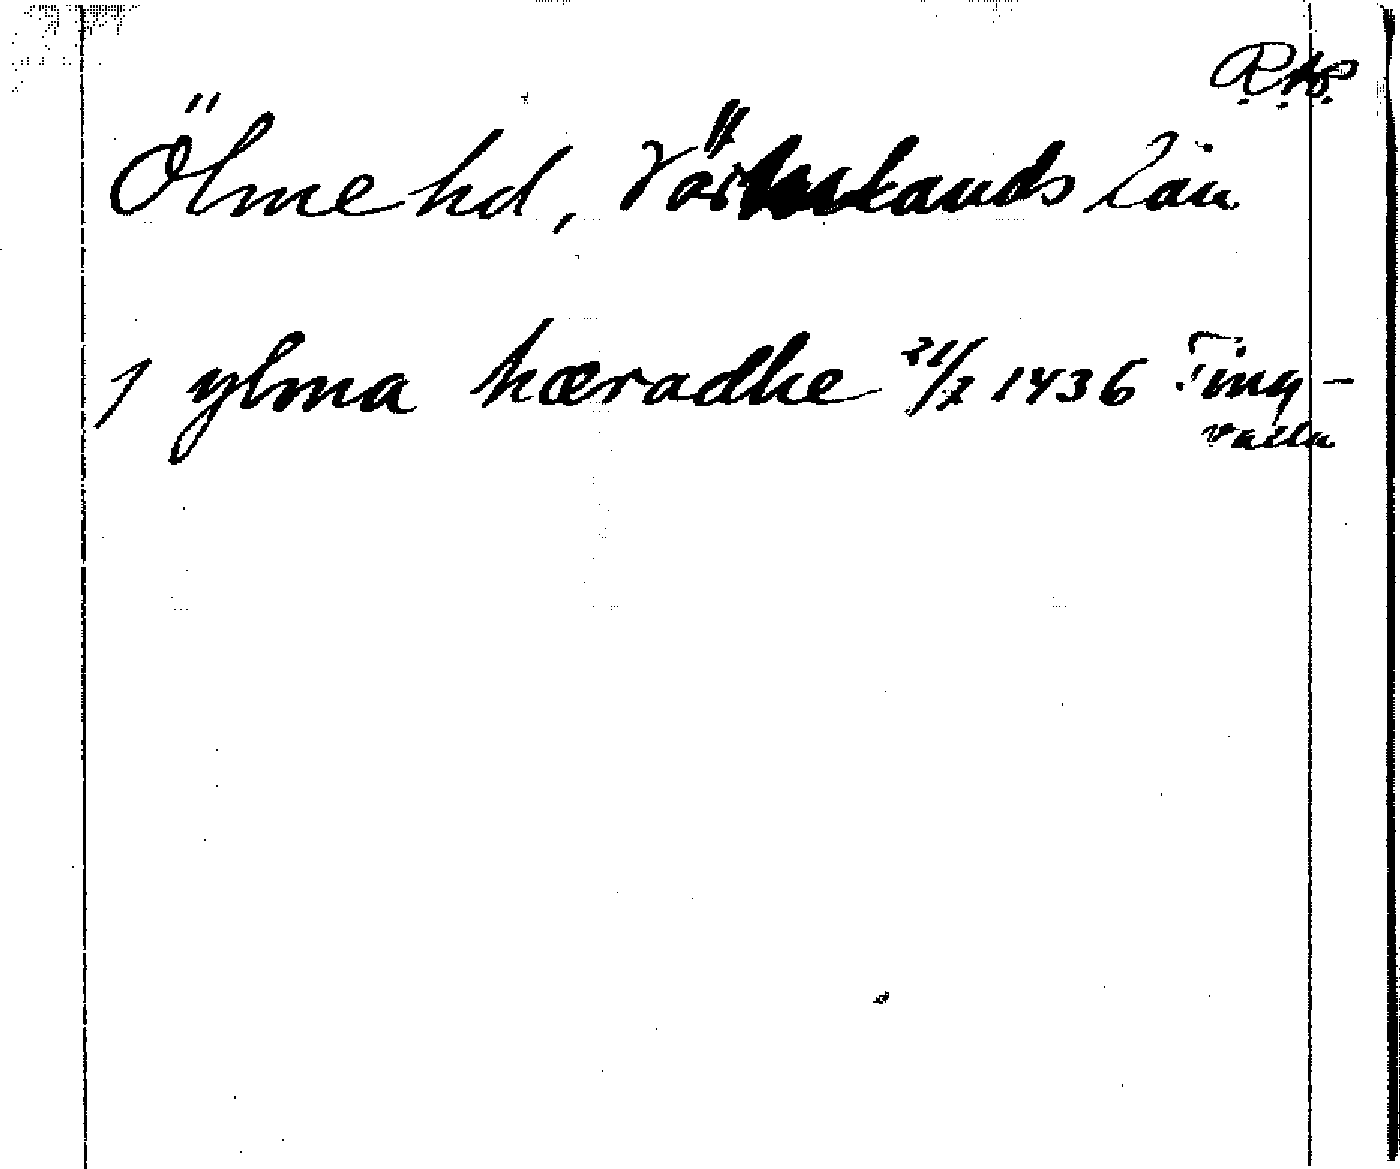 R.A.P.
Ölme hd, Värmlands län
J ylma hæradhe 21/2 1436 Ting-
valla